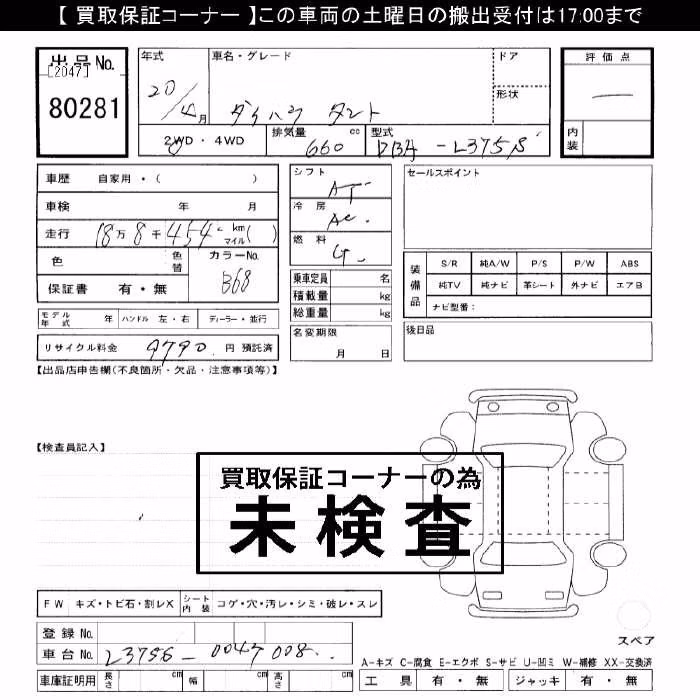 【 買取保証コーナー 】この車両の土曜日の搬出受付は17:00まで
出品No.
[2047]
80281
年式
20/4月
車名・グレード
ダイハツ タント
ドア
形状
2WD・4WD
排気量
660 cc
型式
DBA-L375S
評価点
—
内装
車歴 自家用・( )
車検 年 月
走行 18万8千454 km マイル( )
色
色替
カラーNo.
B68
保証書 有・無
シフト
AT
冷房
AC
燃料
G
乗車定員 名
積載量 kg
総重量 kg
セールスポイント
装備品
S/R 純A/W P/S P/W ABS
純TV 純ナビ 革シート 外ナビ エアB
ナビ型番:
モデル年式 年 ハンドル 左・右 ディーラー・並行
リサイクル料金 9790 円 預託済
名変期限
月 日
後日品
【出品店申告欄(不良箇所・欠品・注意事項等)】
【検査員記入】
買取保証コーナーの為
未検査
FW キズ・トビ石・割レX シート内装 コゲ・穴・汚レ・シミ・破レ・スレ
登録No.
車台No. L375S-0047008
車庫証明用 長さ cm 幅 cm 高さ cm
スペア
A-キズ C-腐食 E-エクボ S-サビ U-凹ミ W-補修 XX-交換済
工具 有・無 ジャッキ 有・無